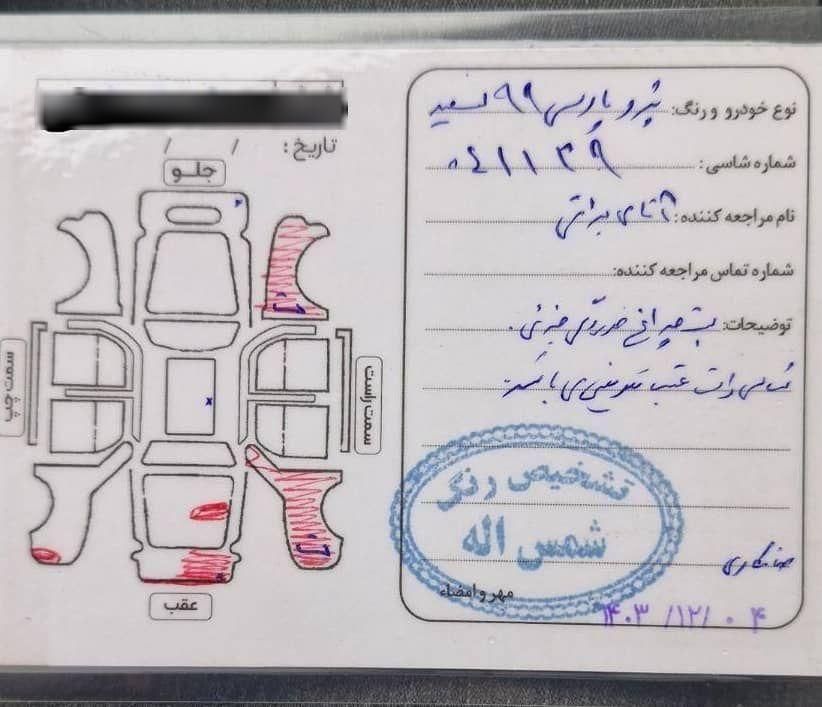 نوع خودرو و رنگ: پژو پارس ۹۹ سفید
شماره شاسی: ۰۴۱۱۳۹
نام مراجعه کننده: آقای براتی
شماره تماس مراجعه کننده:
توضیحات: پشت چراغ خوردگی جزئی.
گلگیر راست عقب تعویض می باشد.
تشخیص رنگ
شمس اله
صافکاری
مهر و امضاء
۱۴۰۳/۱۲/۰۴
تاریخ: / /
جلـو
سمت چپ
سمت راست
عقب